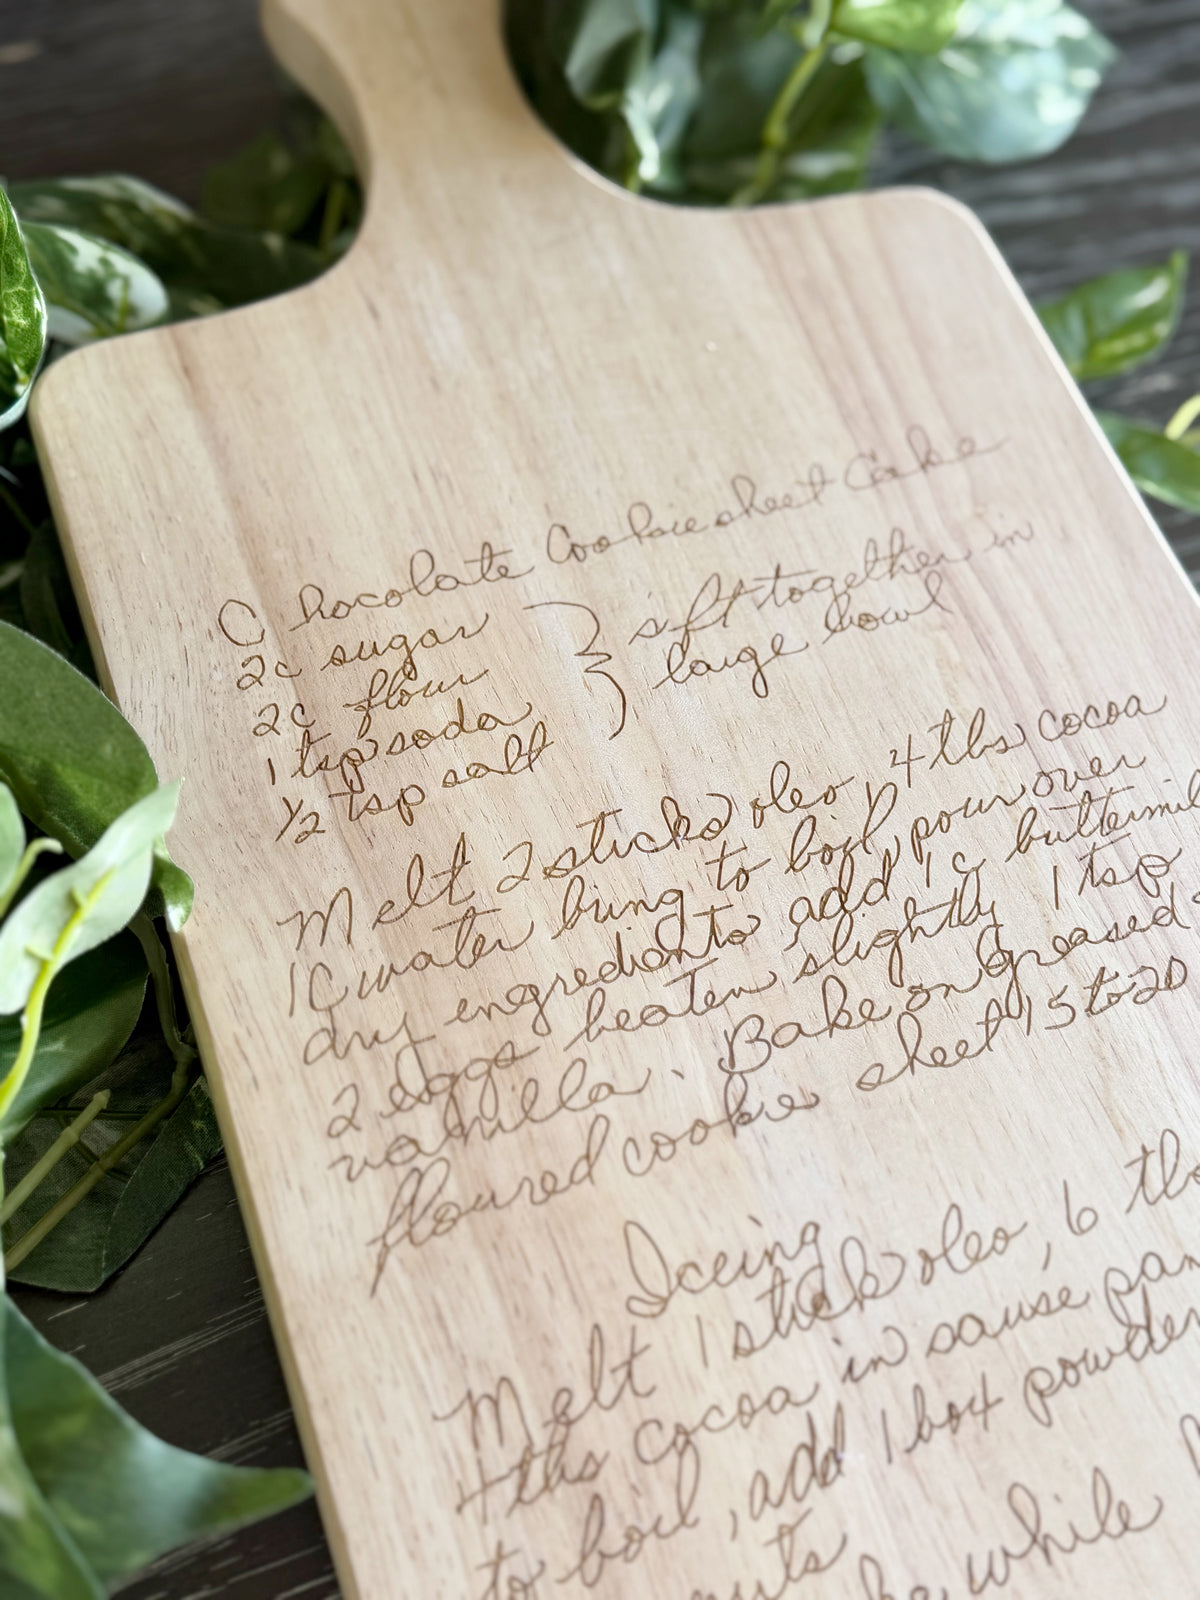 Chocolate Cookie sheet Cake
2c sugar
2c flour
1 tsp soda
1/2 tsp salt
} sift together in
large bowl
Melt 2 sticks oleo, 4 tbs cocoa
1C water bring to boil, pour over
dry ingredients add 1c buttermil
2 eggs beaten slightly 1 tsp
vanilla. Bake on greased
floured cookie sheet 15 to 20
Iceing
Melt 1 stick oleo, 6 tbs
4 tbs cocoa in sause pan
to boil, add 1 box powder
nuts
while